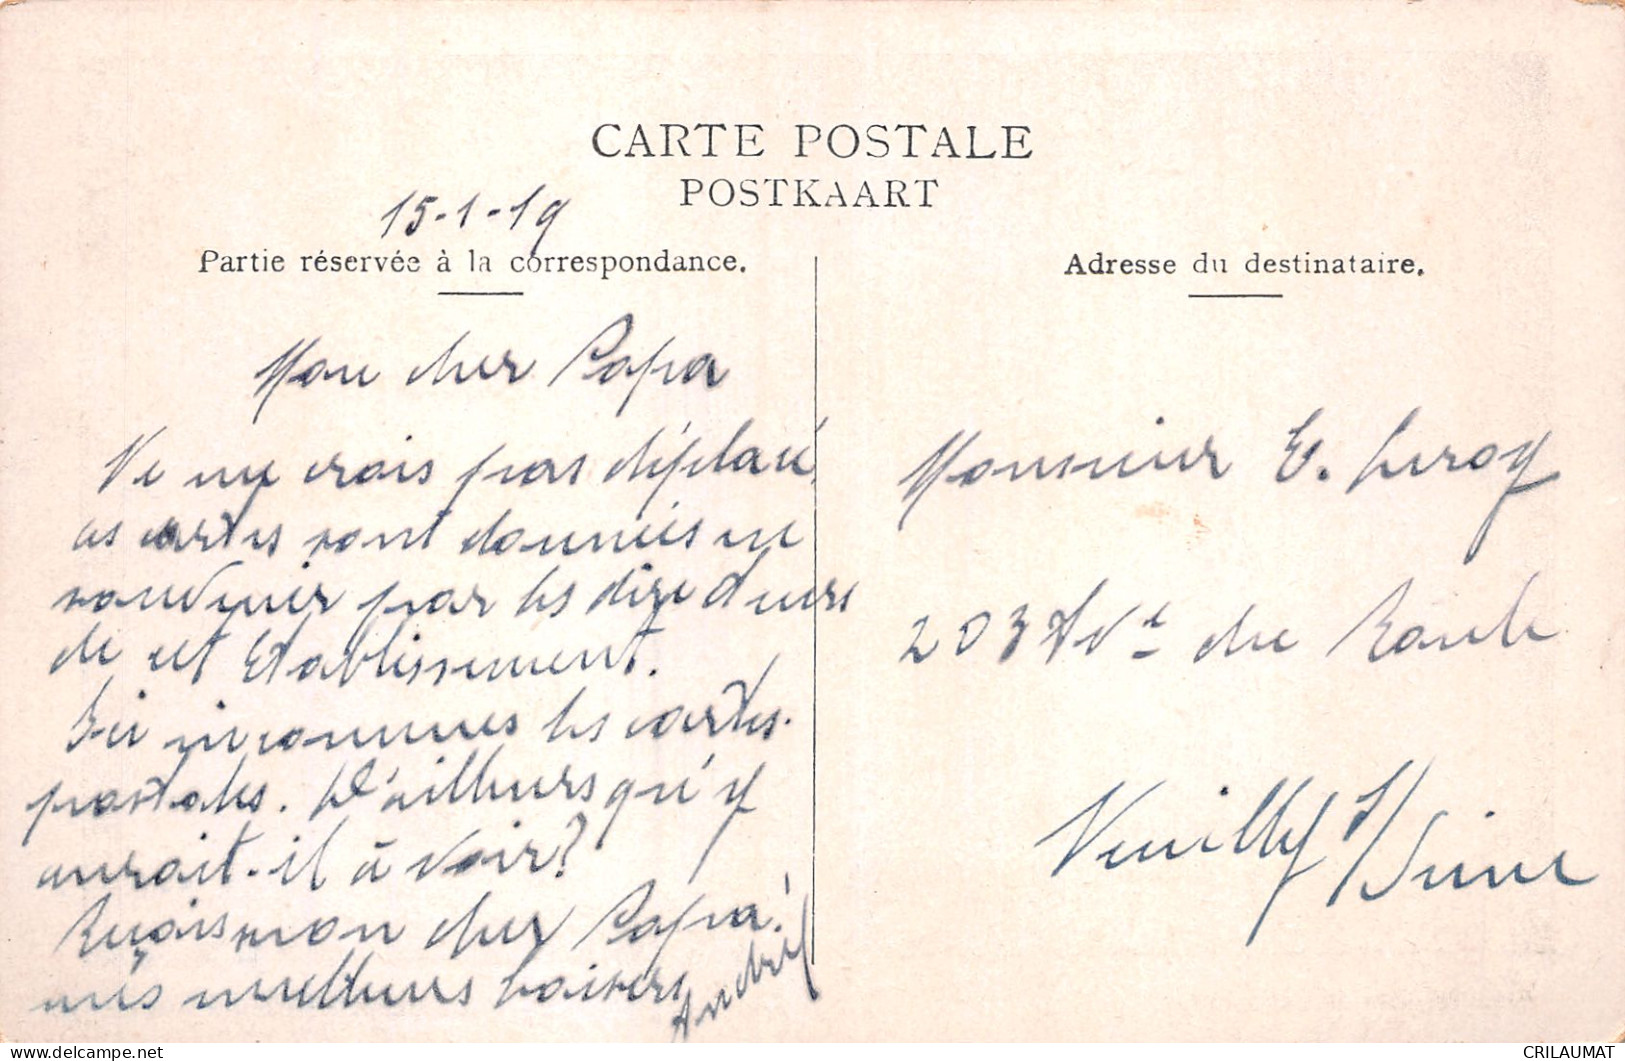 CARTE POSTALE
POSTKAART
15-1-19
Partie réservée à la correspondance.
Mon cher Papa
Ne me crois pas déplacé,
ces cartes sont données en
souvenir par les directeurs
de cet Etablissement.
Ici inconnues les cartes-
postales. D'ailleurs qu'y
aurait-il à voir?
Reçois mon cher Papa!
mes meilleurs baisers
André
Adresse du destinataire.
Monsieur E. Leroy
203 Av. du Roule
Neuilly s/Seine
CRILAUMAT